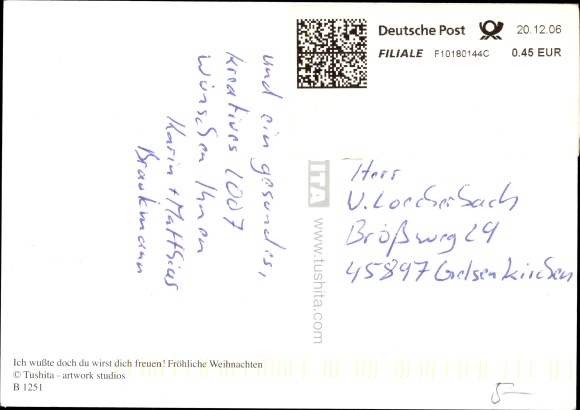 Deutsche Post 20.12.06
FILIALE F10180144C 0.45 EUR
und ein gesundes,
kreatives 2007
wünschen Ihnen
Karin + Matthias
Braukmann
Herr
V. Loecherbach
Brößweg 29
45897 Gelsenkirchen
ITA www.tushita.com
Ich wußte doch du wirst dich freuen! Fröhliche Weihnachten
© Tushita - artwork studios
B 1251